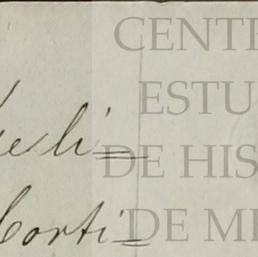 CENT
ESTU
DE HIS
DE ME
eli
Corti